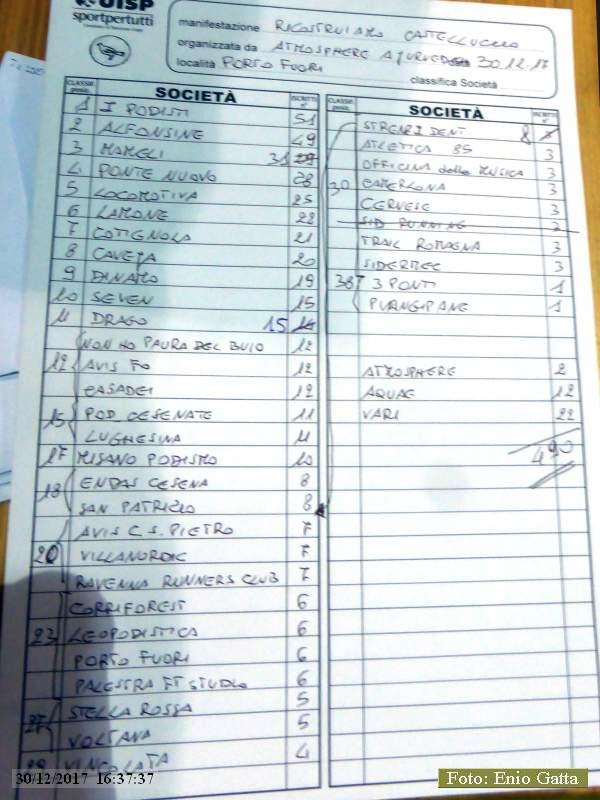 UISP
sportpertutti
manifestazione RICOSTRUIAMO CASTELLUCCIO
organizzata da ATMOSPHERE AYURVEDA 30.12.17
località PORTO FUORI
classifica Società
CLASSIF. SOCIETÀ ISCRITTI n°
1 I PODISTI 51
2 ALFONSINE 49
3 MAMELI 31
4 PONTE NUOVO 28
5 LOCOMOTIVA 25
6 LAMONE 22
7 COTIGNOLA 21
8 CAVEJA 20
9 DINAMO 19
10 SEVEN 15
11 DRAGO 15 14
NON HO PAURA DEL BUIO 12
12 AVIS FO 12
CASADEI 12
15 POD CESENATE 11
LUGHESINA 11
17 MISANO PODISMO 10
18 ENDAS CESENA 8
SAN PATRIZIO 8
AVIS C S. PIETRO 7
20 VILLANORDIC 7
RAVENNA RUNNERS CLUB 7
CORRIFOREST 6
23 LEOPODISTICA 6
PORTO FUORI 6
PALESTRA FT STUDIO 6
27 STELLA ROSSA 5
VOLTANA 5
29 VINCOLATA 4
CLASSIF. SOCIETÀ ISCRITTI n°
8
ATLETICA 85 3
OFFICINA della MUSICA 3
30 CAMERLONA 3
CERVESE 3
SID RUNNING 2
TRAIL ROMAGNA 3
SIDERMEC 3
38 3 PONTI 1
PUNGIPANE 1
ATMOSPHERE 2
AQUAE 12
VARI 22
490
30/12/2017 16:37:37
Foto: Enio Gatta